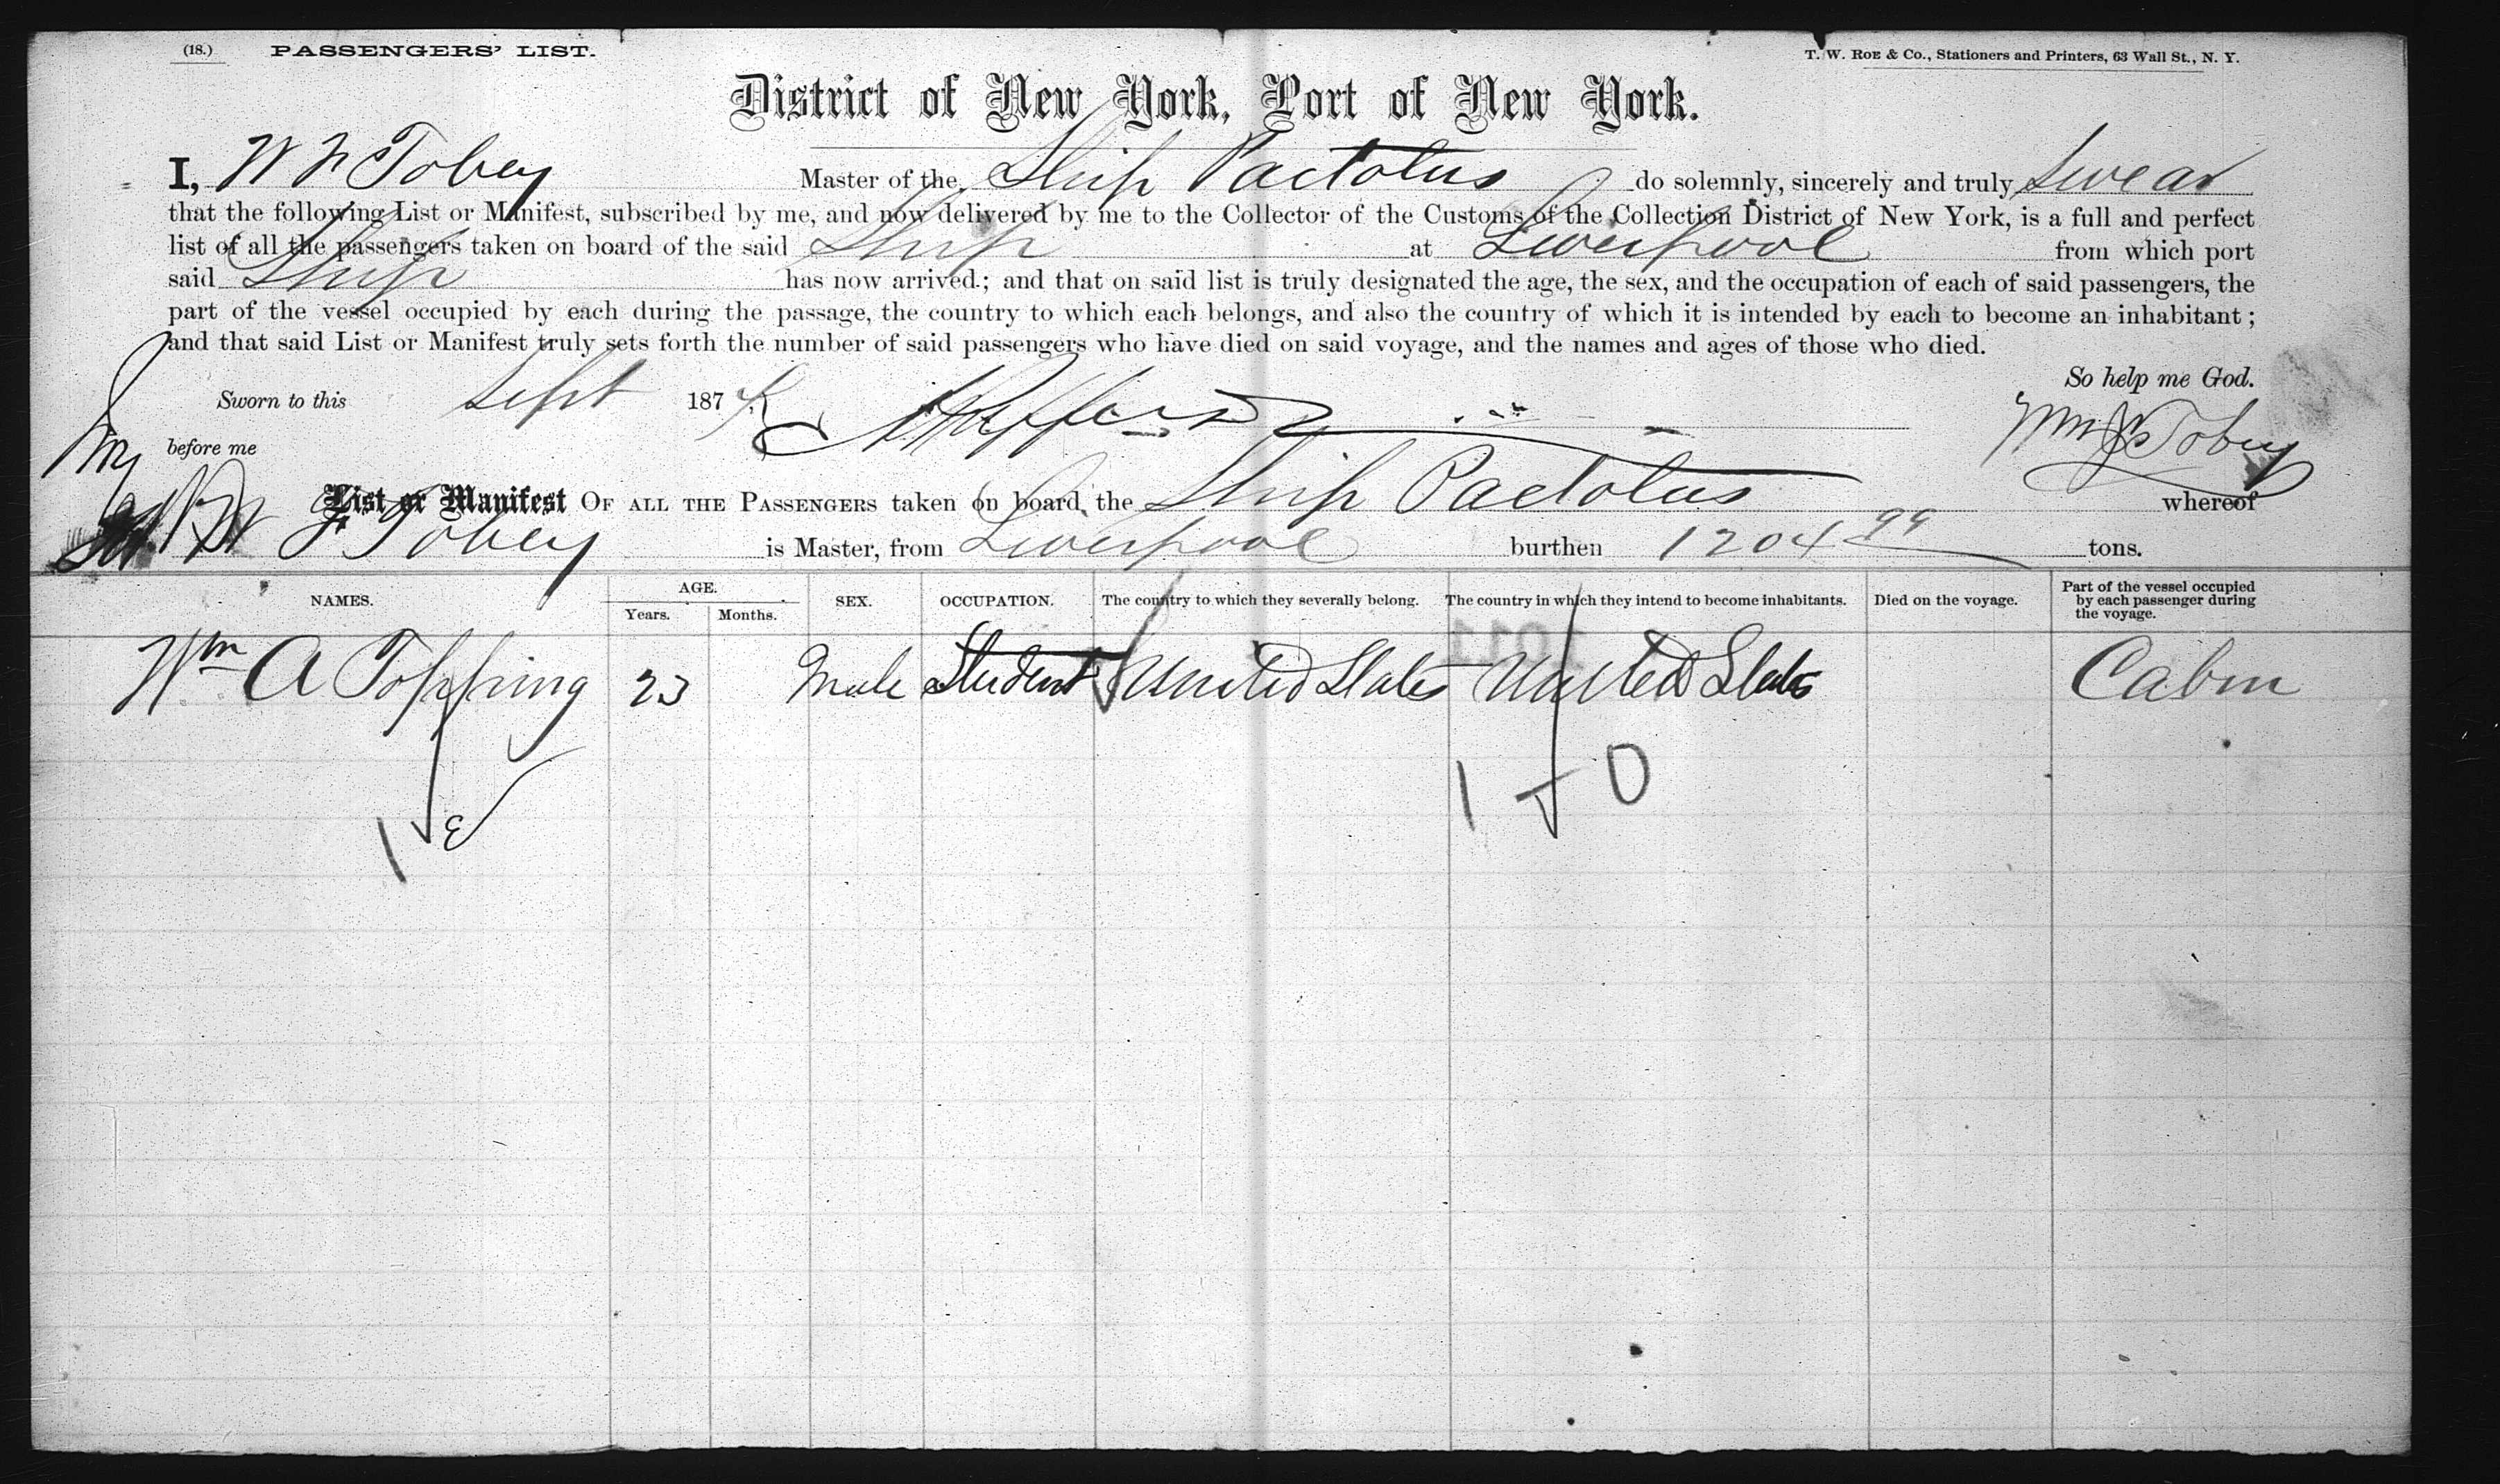 (18.) PASSENGERS' LIST.
T. W. ROE & Co., Stationers and Printers, 63 Wall St., N. Y.
District of New York, Port of New York.
I, W F Tobey Master of the Ship Pactolus do solemnly, sincerely and truly swear
that the following List or Manifest, subscribed by me, and now delivered by me to the Collector of the Customs of the Collection District of New York, is a full and perfect
list of all the passengers taken on board of the said Ship at Liverpool from which port
said Ship has now arrived; and that on said list is truly designated the age, the sex, and the occupation of each of said passengers, the
part of the vessel occupied by each during the passage, the country to which each belongs, and also the country of which it is intended by each to become an inhabitant;
and that said List or Manifest truly sets forth the number of said passengers who have died on said voyage, and the names and ages of those who died.
So help me God.
Sworn to this Sept 187
Tobey
before me
List or Manifest OF ALL THE PASSENGERS taken on board the Ship Pactolus whereof
Tobey is Master, from Liverpool burthen 1204 99 tons.
NAMES. AGE. Years. Months. SEX. OCCUPATION. The country to which they severally belong. The country in which they intend to become inhabitants. Died on the voyage. Part of the vessel occupied by each passenger during the voyage.
Wm A Topping 23 Male Student United States United States Cabin
1 0
1